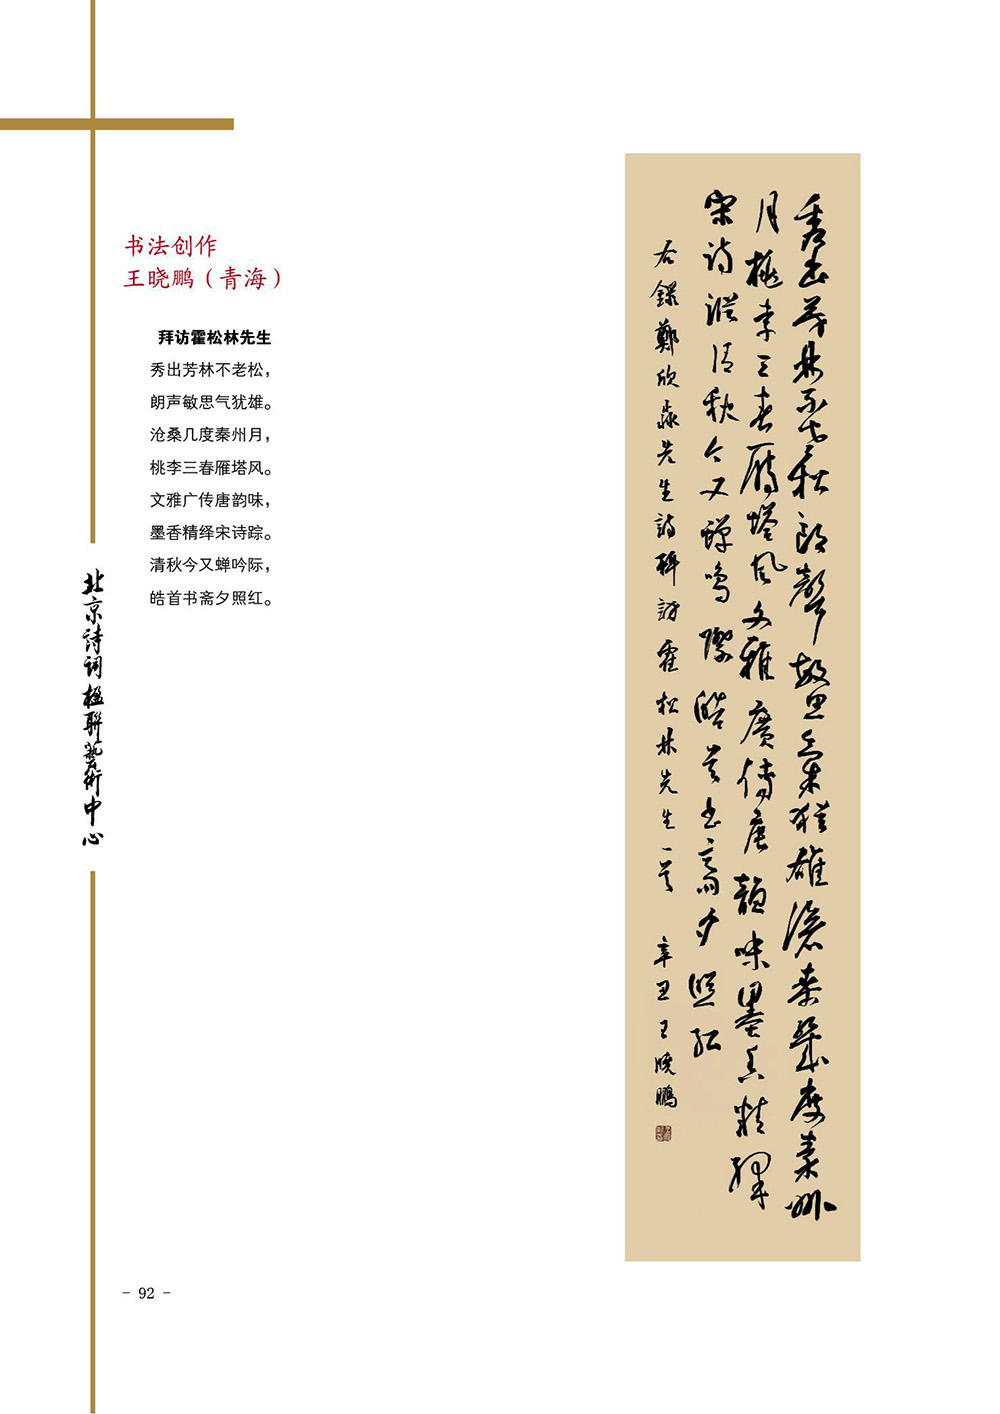 书法创作
王晓鹏（青海）
拜访霍松林先生
秀出芳林不老松，
朗声敏思气犹雄。
沧桑几度秦州月，
桃李三春雁塔风。
文雅广传唐韵味，
墨香精绎宋诗踪。
清秋今又蝉吟际，
皓首书斋夕照红。
北京詩词楹聯藝術中心
秀出芳林不老松朗聲敏思氣犹雄滄桑幾度秦州
月桃李三春雁塔風文雅廣傳唐韻味墨香精繹
宋詩踪清秋今又蟬鳴際皓首書斋夕照红
右錄鄭欣淼先生詩拜訪霍松林先生一首 辛丑王曉鵬
- 92 -